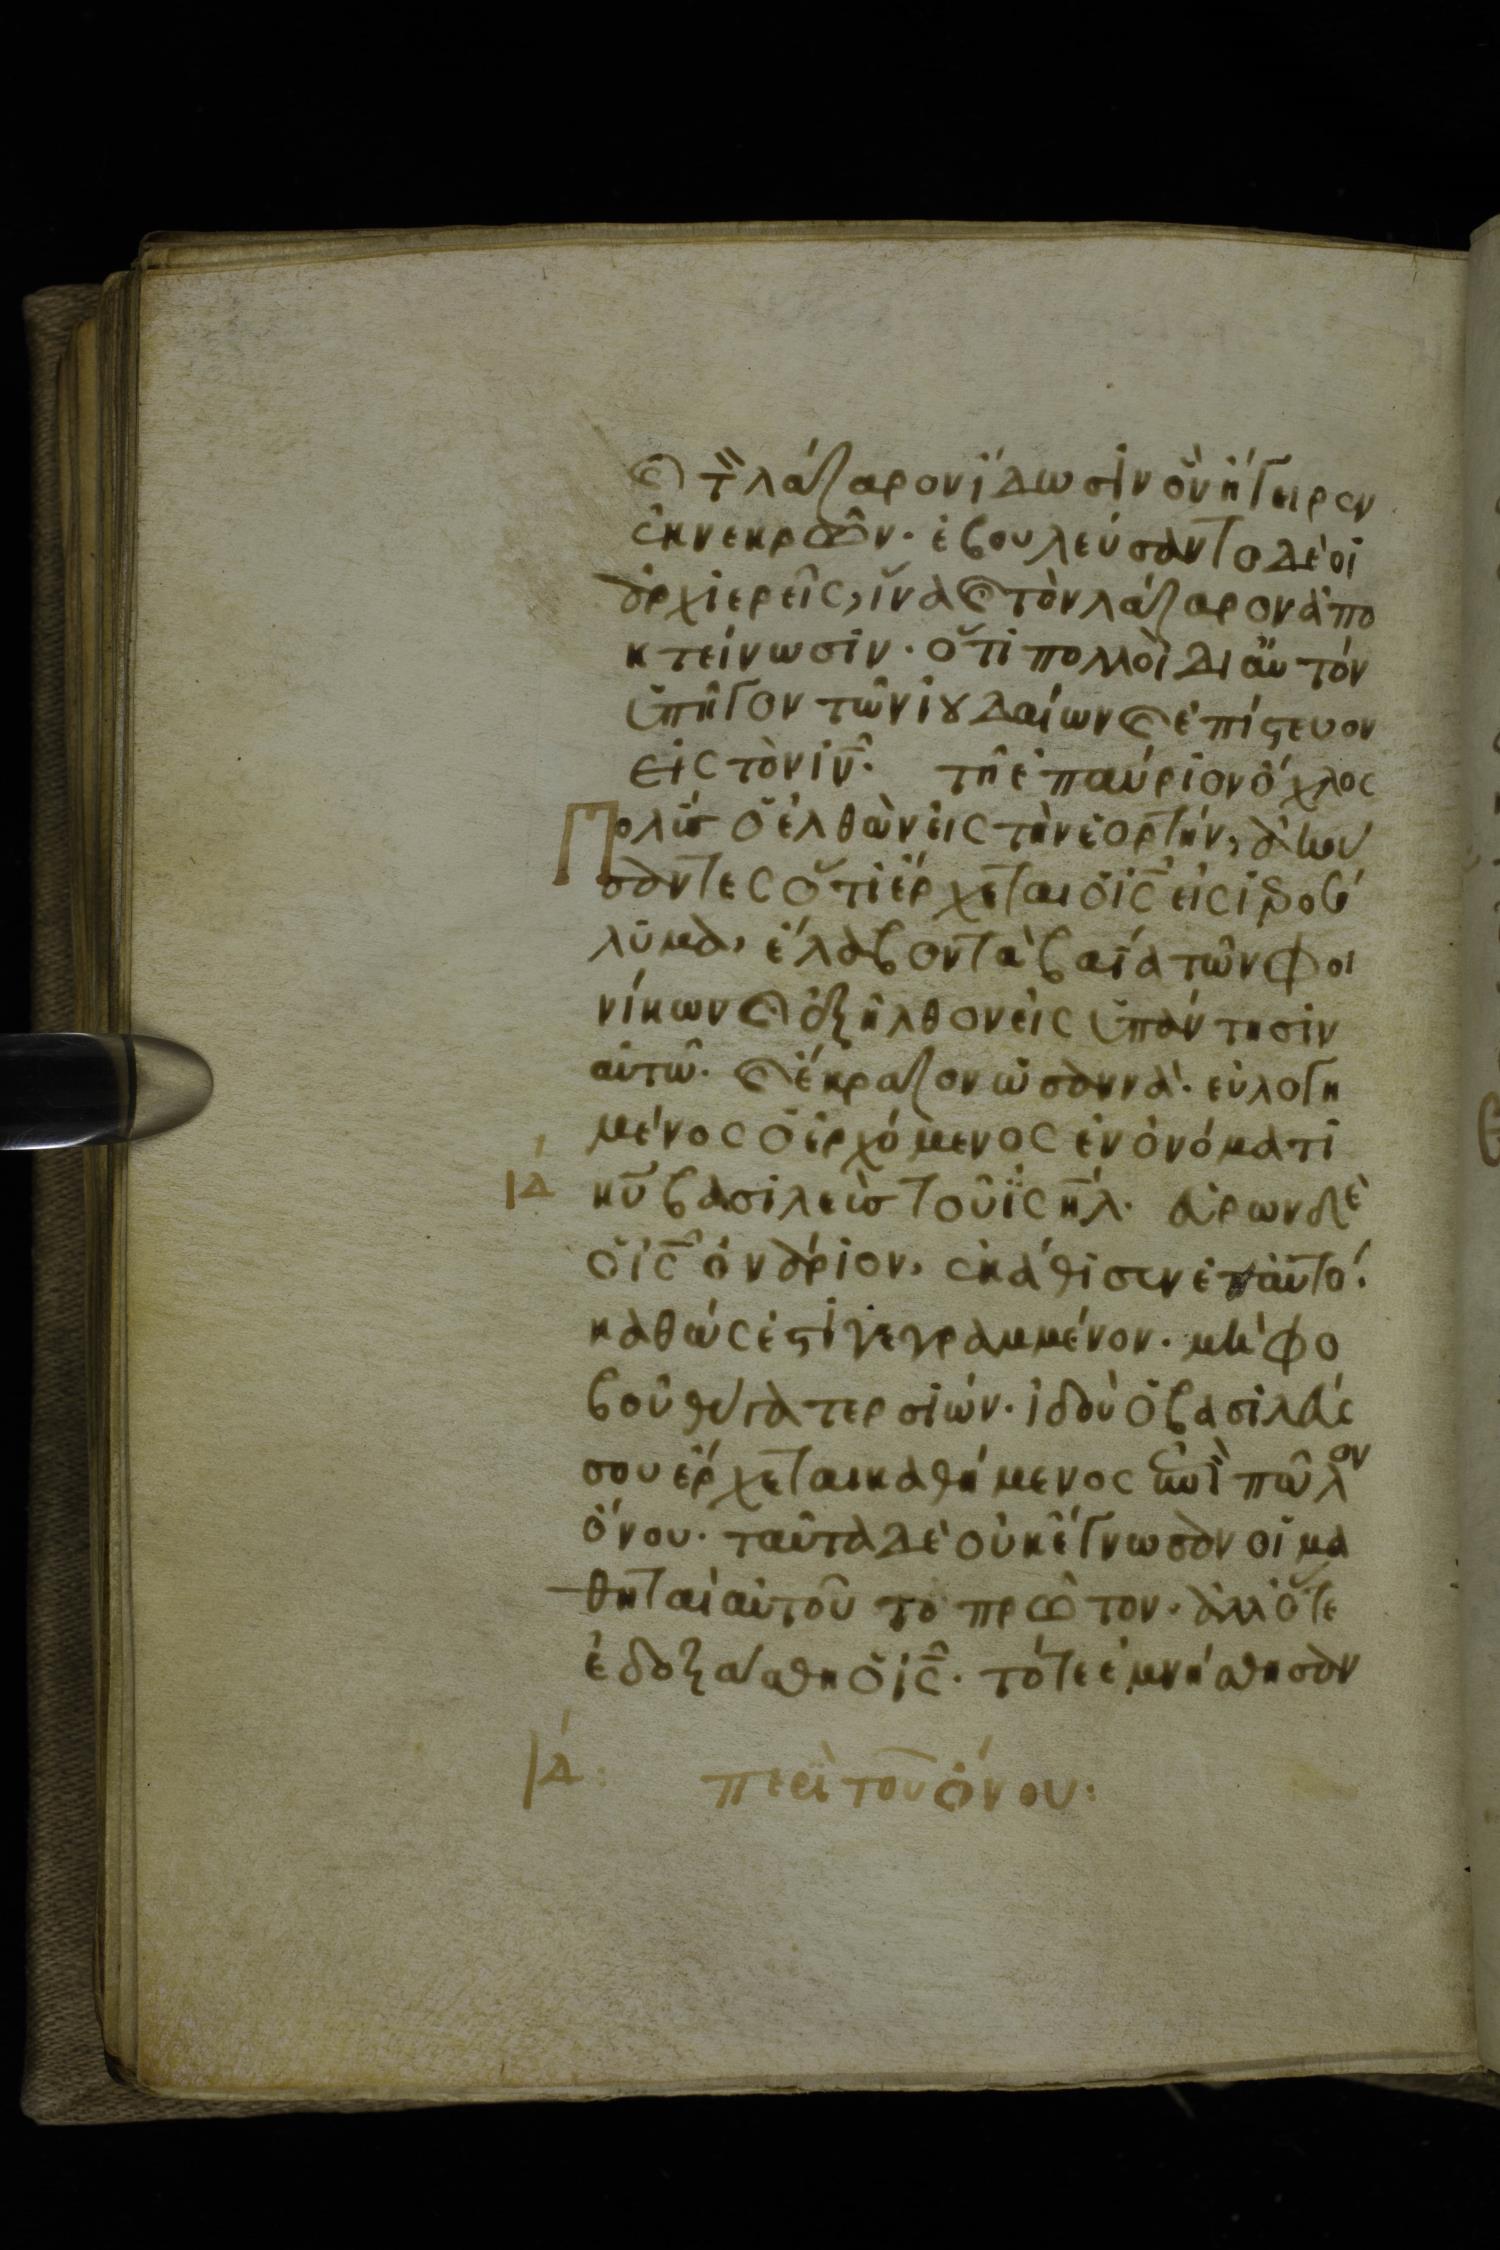 καὶ τὸν λάζαρον ἴδωσιν ὃν ἤγειρεν
ἐκ νεκρῶν· ἐβουλεύσαντο δὲ οἱ
ἀρχιερεῖς, ἵνα καὶ τὸν λάζαρον ἀπο
κτείνωσιν· ὅτι πολλοὶ δι αὐτόν
ὑπῆγον τῶν ἰουδαίων καὶ ἐπίστευον
εἰς τὸν ἰν̅· τῆ ἐπαύριον ὄχλος
Πολὺς ὁ ἐλθὼν εἰς τὴν ἑορτήν, ἀκού
σαντες ὅτι ἔρχεται ὁ ἰς̅ εἰς ἱεροσό
λυμα, ἔλαβον τὰ βαΐα τῶν φοι
νίκων καὶ ἐξῆλθον εἰς ὑπάντησιν
αὐτῶ· καὶ ἔκραζον ὡσαννά· εὐλογη
μένος ὁ ἐρχόμενος ἐν ὀνόματι
ΙΔ κυ̅ βασιλεὺς τοῦ ἰσ̅ηλ· εὑρὼν δὲ
ὁ ἰς̅ ὀνάριον, ἐκάθισεν ἐπ αὐτό·
καθώς ἐστι γεγραμμένον· μὴ φο
βοῦ θύγατερ σιών· ἰδοὺ ὁ βασιλεύς
σου ἔρχεται καθήμενος ἐπὶ πῶλον
ὄνου· ταῦτα δὲ οὐκ ἔγνωσαν οἱ μα
θηταὶ αὐτοῦ τὸ πρῶτον· ἀλλ ὅτε
ἐδοξάσθη ὁ ἰς̅· τότε ἐμνήσθησαν
ΙΔ: περὶ τοῦ ὄνου: